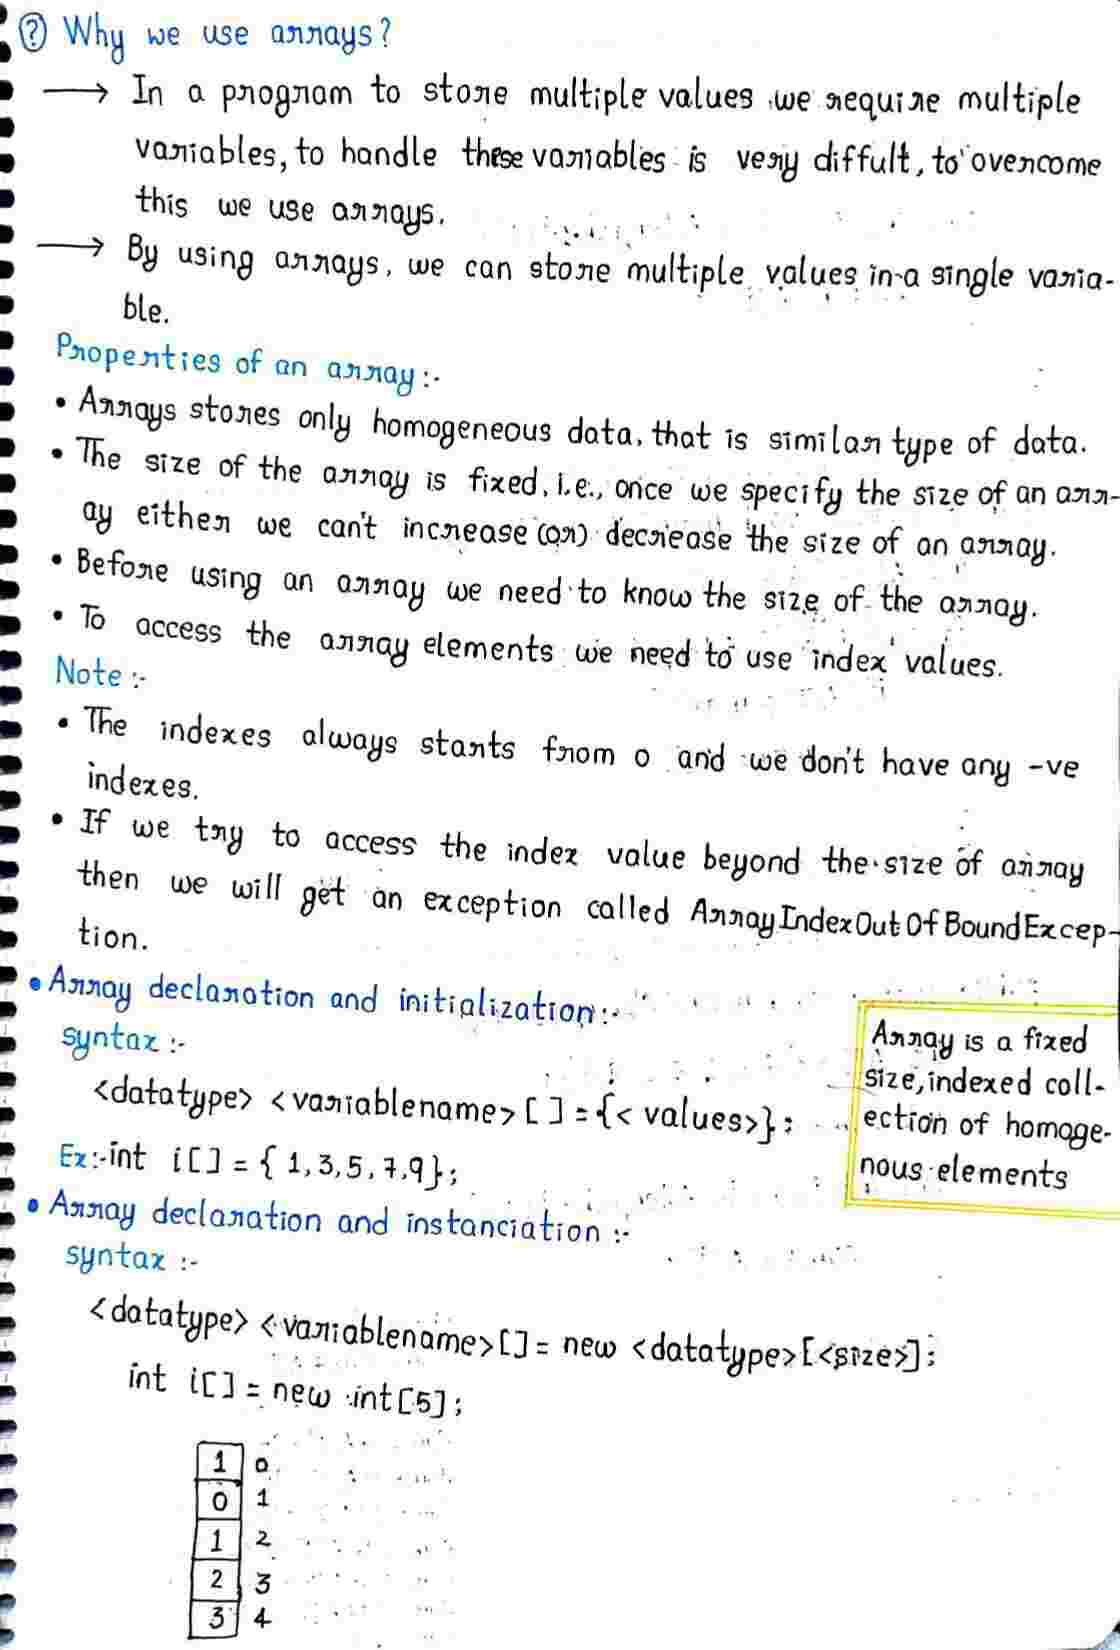 ? Why we use arrays?
→ In a program to store multiple values we require multiple
variables, to handle these variables is very diffult, to overcome
this we use arrays.
→ By using arrays, we can store multiple values in a single varia-
ble.
Properties of an array :-
• Arrays stores only homogeneous data, that is similar type of data.
• The size of the array is fixed, i.e., once we specify the size of an arr-
ay either we can't increase (or) decrease the size of an array.
• Before using an array we need to know the size of the array.
• To access the array elements we need to use index values.
Note :-
• The indexes always starts from 0 and we don't have any -ve
indexes.
• If we try to access the index value beyond the size of array
then we will get an exception called ArrayIndexOutOfBoundExcep-
tion.
• Array declaration and initialization :-
syntax :-
<datatype> <variablename> [ ] = {< values>};
Ex:- int i[] = { 1,3,5,7,9};
Array is a fixed
size, indexed coll-
ection of homoge-
nous elements
• Array declaration and instanciation :-
syntax :-
<datatype> <variablename>[] = new <datatype>[<size>];
int i[] = new int[5];
1 0
0 1
1 2
2 3
3 4